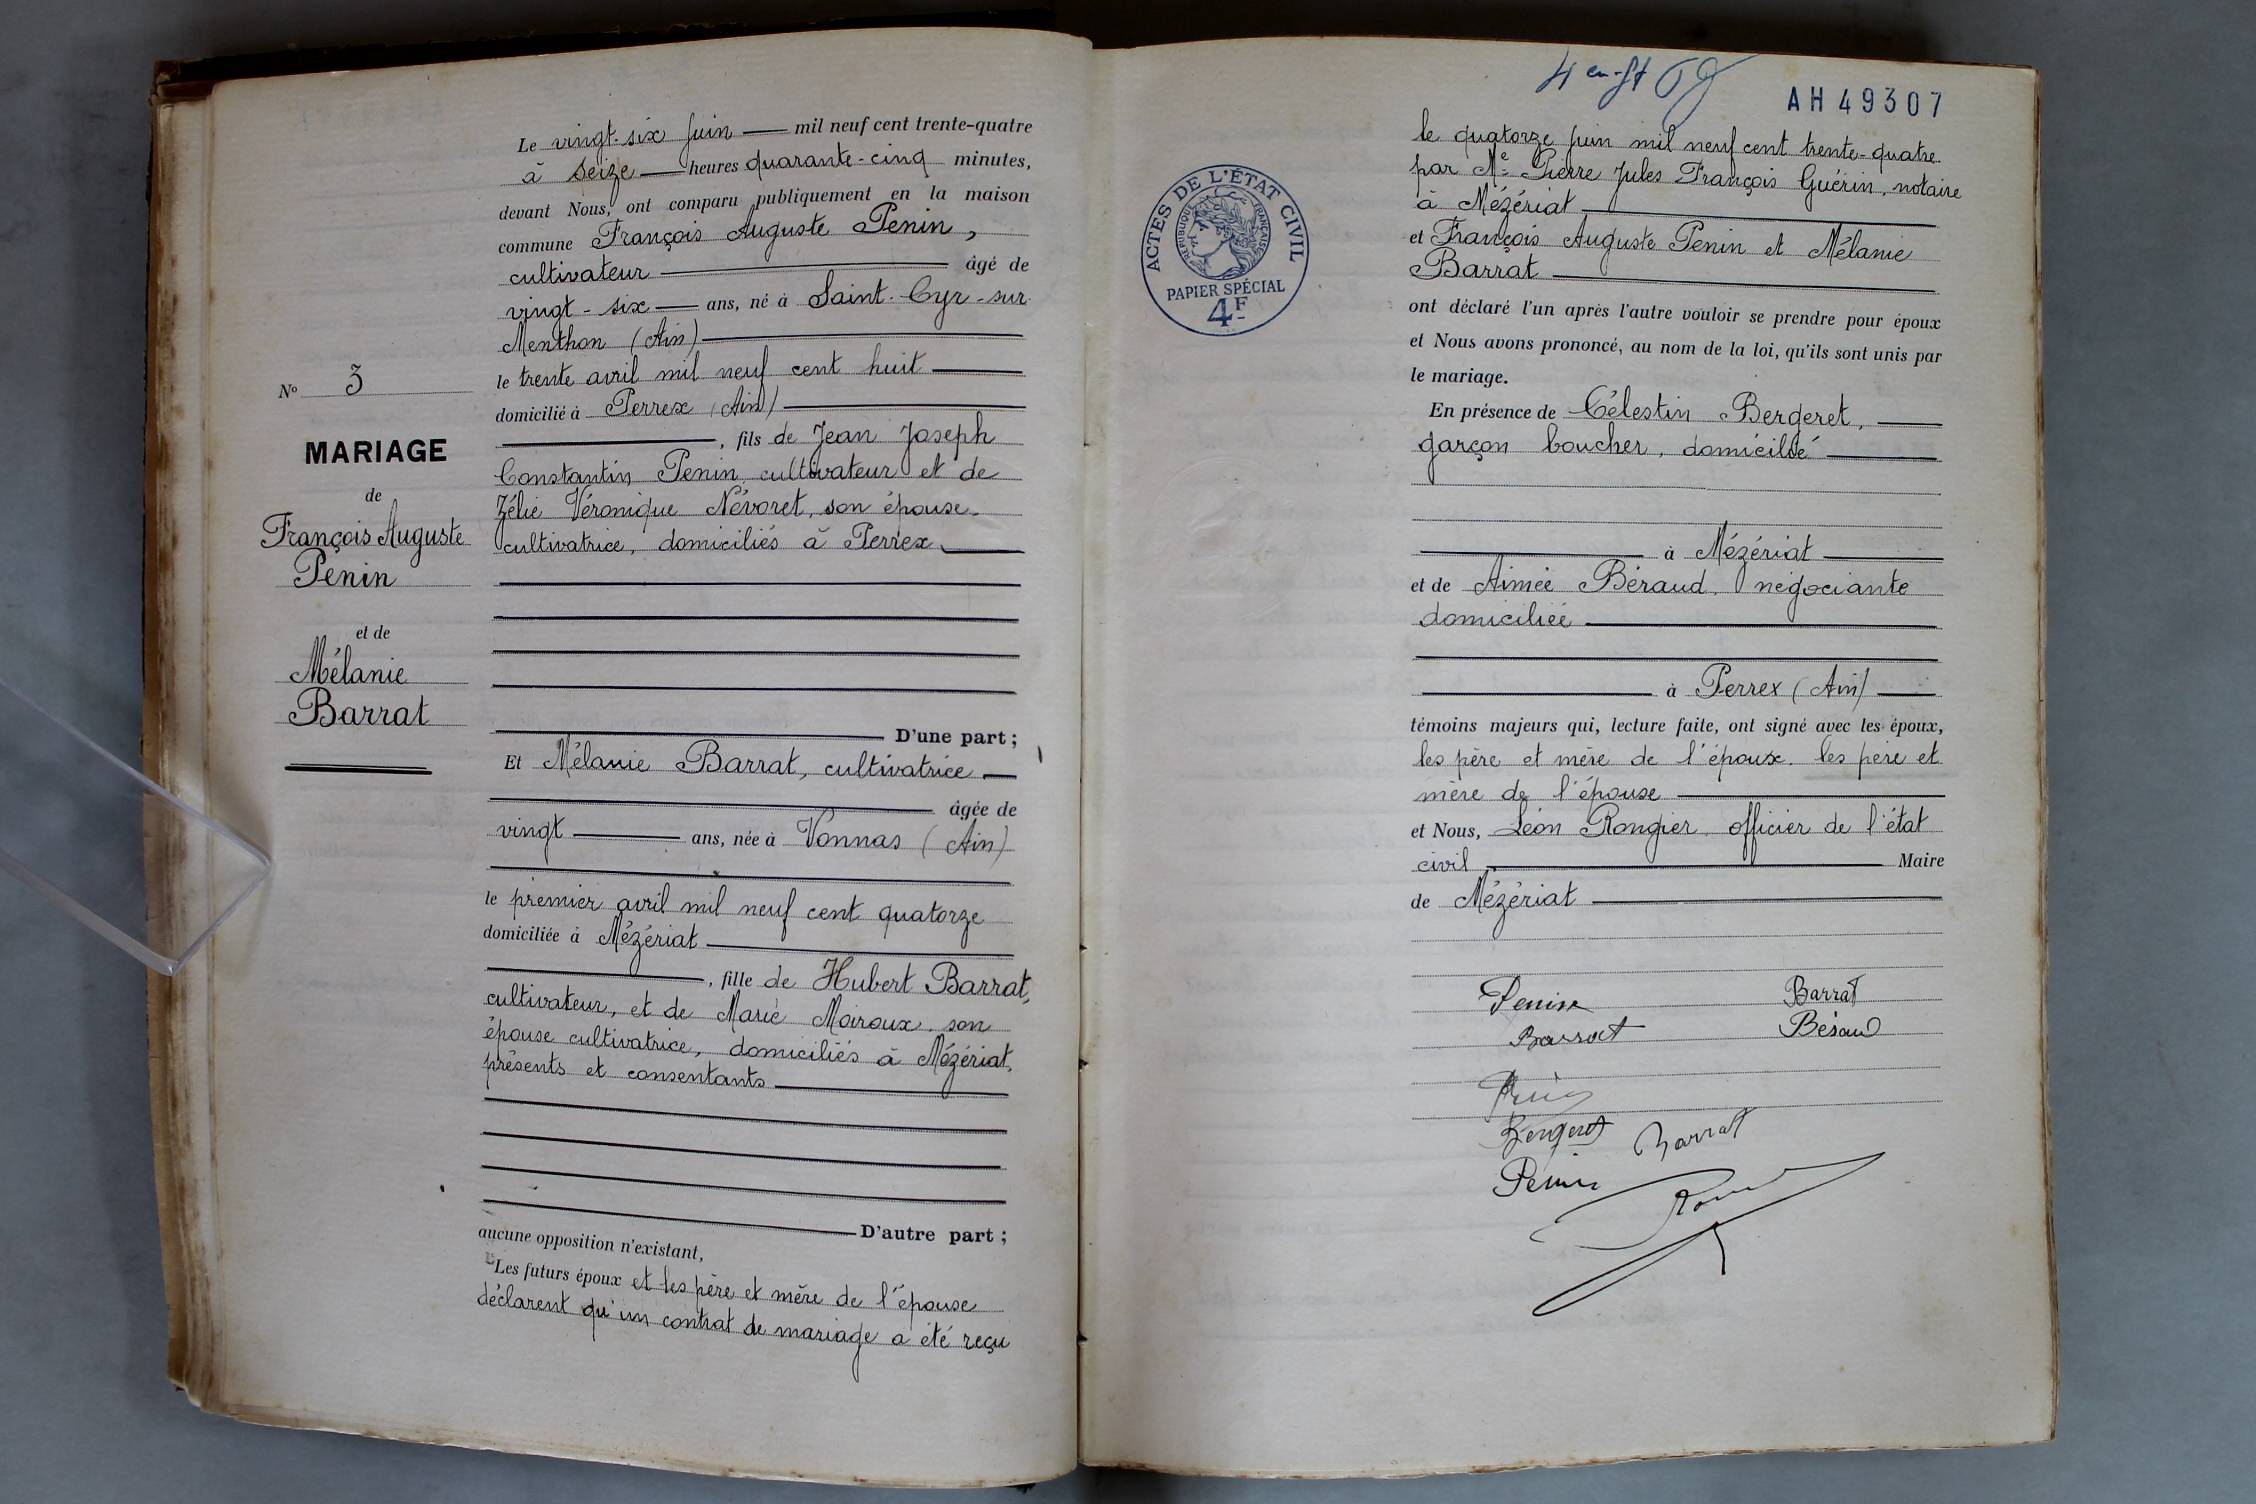 N° 3
MARIAGE
de
François Auguste
Penin
et de
Mélanie
Barrat
Le vingt-six juin mil neuf cent trente-quatre
à seize heures quarante-cinq minutes,
devant Nous, ont comparu publiquement en la maison
commune François Auguste Penin,
cultivateur âgé de
vingt-six ans, né à Saint-Cyr-sur-
Menthon (Ain)
le trente avril mil neuf cent huit
domicilié à Perrex (Ain)
, fils de Jean Joseph
Constantin Penin, cultivateur et de
Zélie Véronique Névoret, son épouse
cultivatrice, domiciliés à Perrex
D'une part ;
Et Mélanie Barrat, cultivatrice
âgée de
vingt ans, née à Vonnas (Ain)
le premier avril mil neuf cent quatorze
domiciliée à Mézériat
, fille de Hubert Barrat,
cultivateur, et de Marie Moiroux, son
épouse cultivatrice, domiciliés à Mézériat,
présents et consentants
D'autre part ;
aucune opposition n'existant,
Les futurs époux et les père et mère de l'épouse
déclarent qu'un contrat de mariage a été reçu
AH 49307
ACTES DE L'ÉTAT CIVIL
RÉPUBLIQUE FRANÇAISE
PAPIER SPÉCIAL
4F
le quatorze juin mil neuf cent trente-quatre
par Me Pierre Jules François Guérin, notaire
à Mézériat
et François Auguste Penin et Mélanie
Barrat
ont déclaré l'un après l'autre vouloir se prendre pour époux
et Nous avons prononcé, au nom de la loi, qu'ils sont unis par
le mariage.
En présence de Célestin Bergeret,
garçon boucher, domicilié
à Mézériat
et de Aimée Béraud, négociante
domiciliée
à Perrex (Ain)
témoins majeurs qui, lecture faite, ont signé avec les époux,
les père et mère de l'époux, les père et
mère de l'épouse
et Nous, Léon Rongier, officier de l'état
civil Maire
de Mézériat
Penin Barrat
Barrat Béraud
Bergeret Barrat
Penin